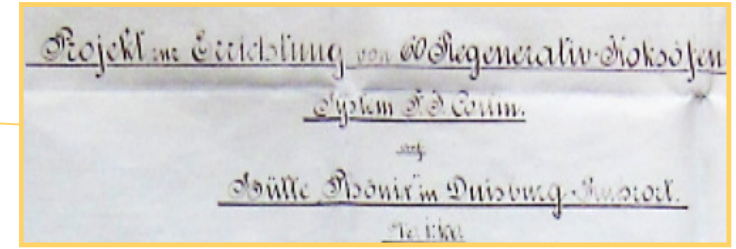 Projekt zur Errichtung von 60 Regenerativ-Koksöfen
System F.J. Collin.
auf
Hütte Phönix in Duisburg-Ruhrort.